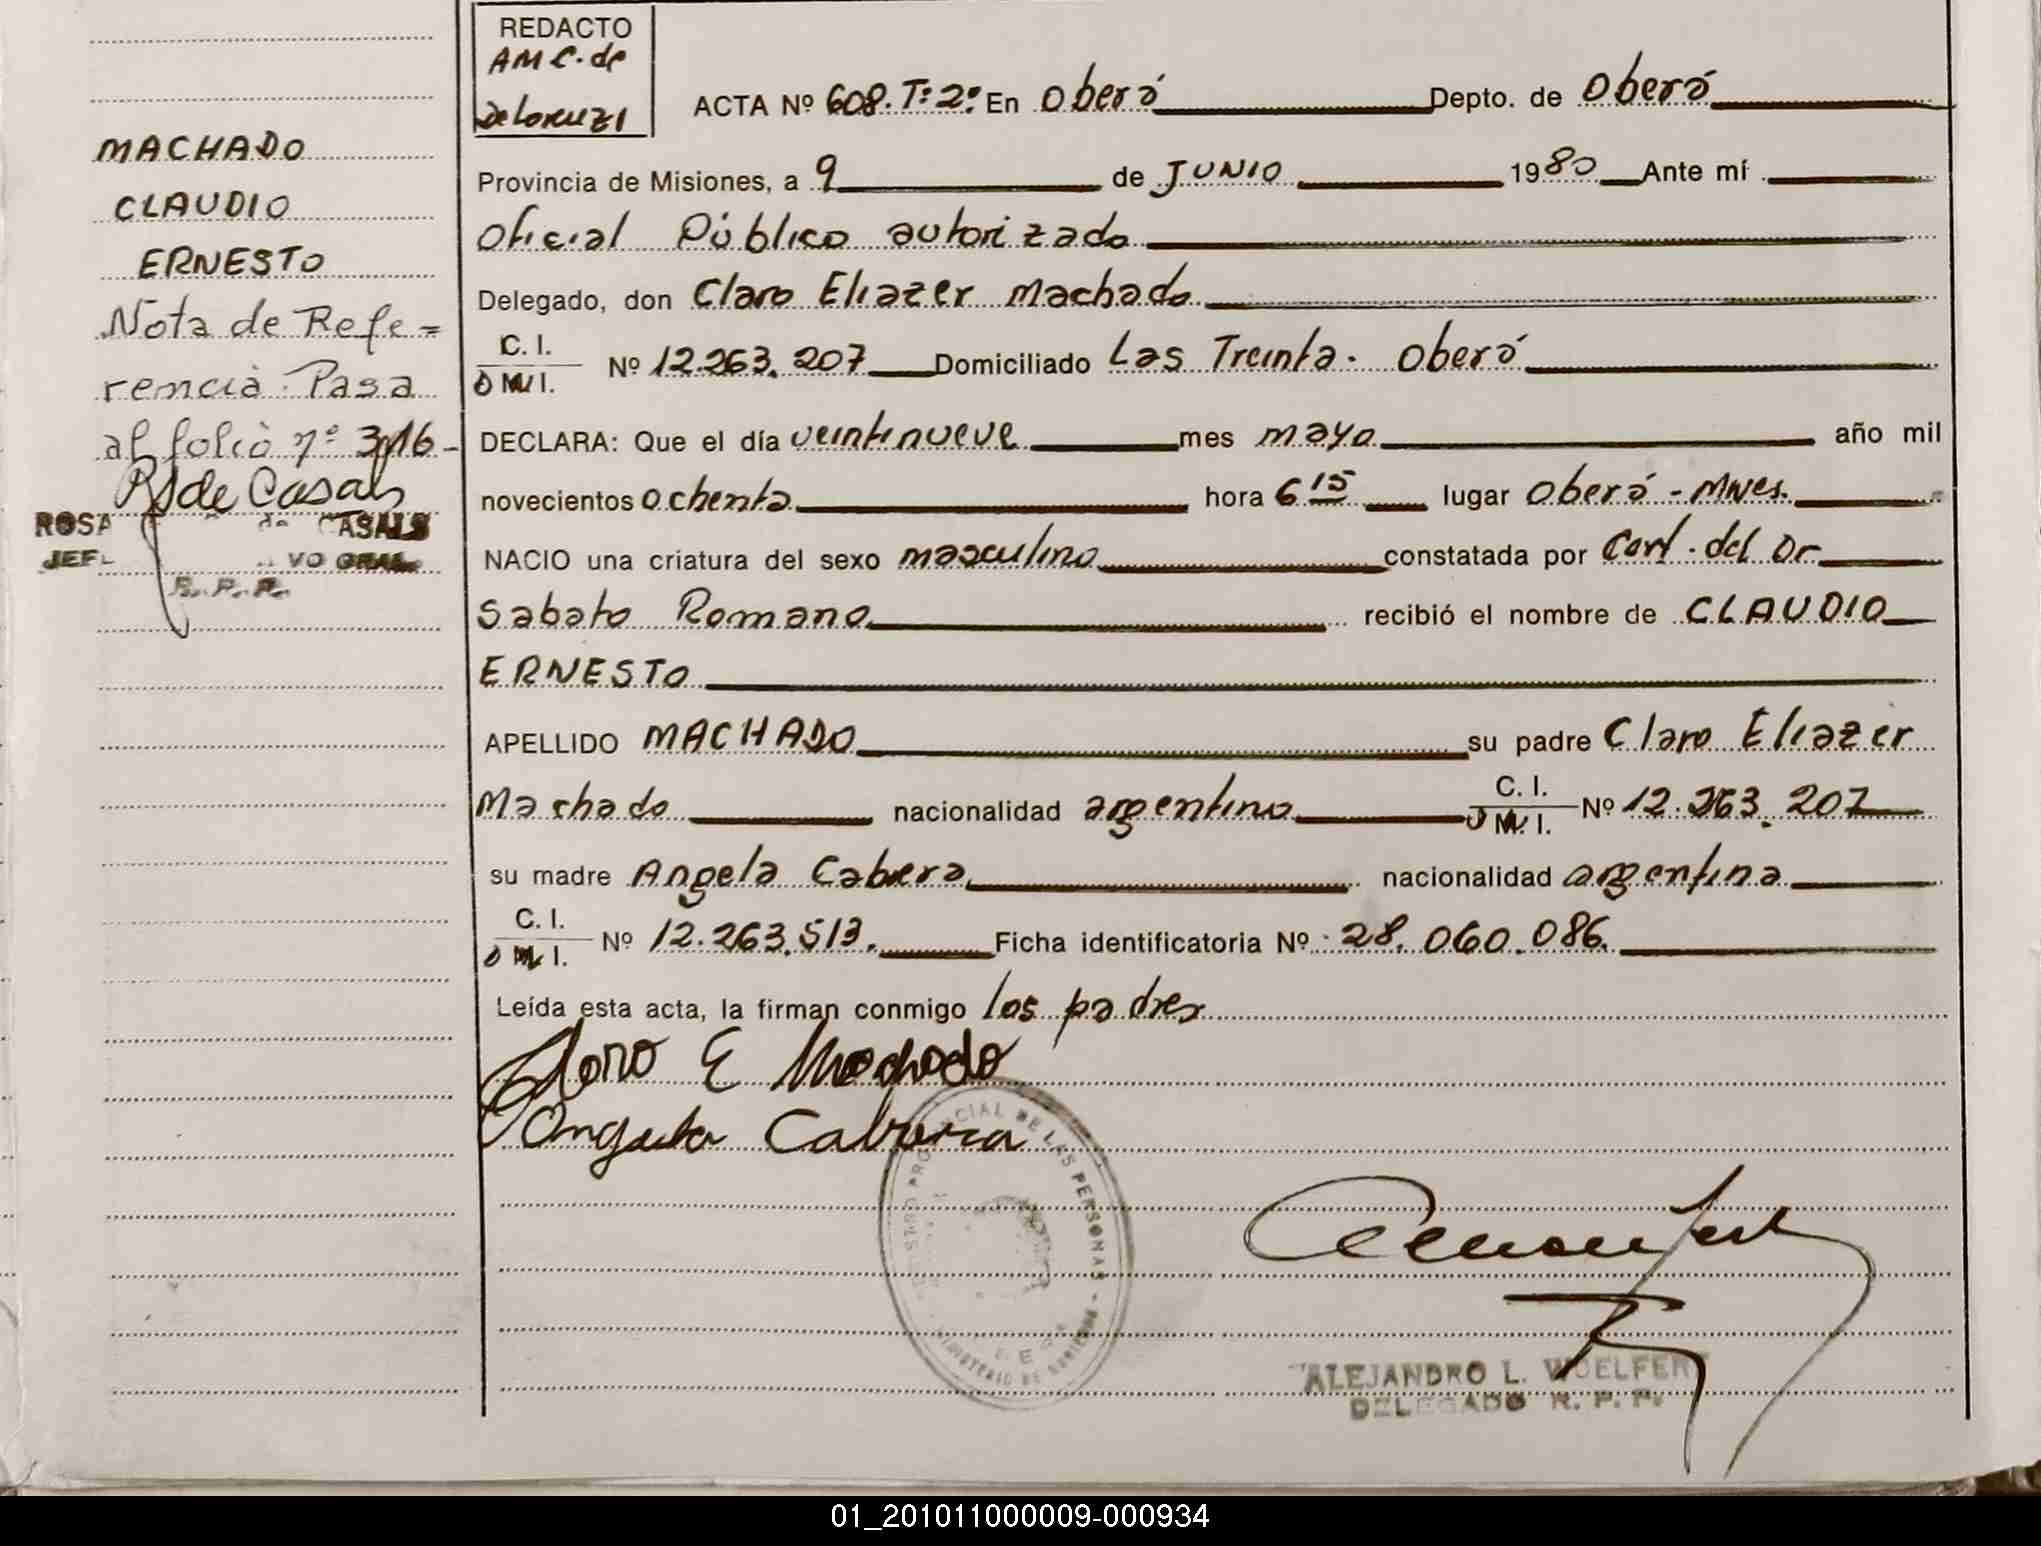 MACHADO
CLAUDIO
ERNESTO
Nota de Refe=
rencia. Pasa
al folio nº 316-
R. de Casals
ROSA de CASALS
JEF VO GRAL.
R. P. P.
REDACTO
AMC. de
de Lorenzi
ACTA Nº 608. Tº 2º. En Oberá Depto. de Oberá
Provincia de Misiones, a 9 de JUNIO 1980 Ante mí
Oficial Público autorizado
Delegado, don Claro Eliazer Machado
C. I.
D M. I. Nº 12.263.207 Domiciliado Las Treinta. Oberá
DECLARA: Que el día veintinueve mes mayo año mil
novecientos ochenta hora 6 15 lugar Oberá - Mnes.
NACIO una criatura del sexo masculino constatada por Cert. del Dr
Sabato Romano recibió el nombre de CLAUDIO
ERNESTO
APELLIDO MACHADO su padre Claro Eliazer
Machado nacionalidad argentino C. I.
D M. I. Nº 12.263.207
su madre Angela Cabrera nacionalidad argentina
C. I.
D M. I. Nº 12.263.513. Ficha identificatoria Nº 28.060.086.
Leída esta acta, la firman conmigo los padres
Claro E Machado
Angela Cabrera
REGISTRO PROVINCIAL DE LAS PERSONAS - MINISTERIO DE GOBIERNO
ALEJANDRO L. WOELFERT
DELEGADO R. P. P.
01_201011000009-000934